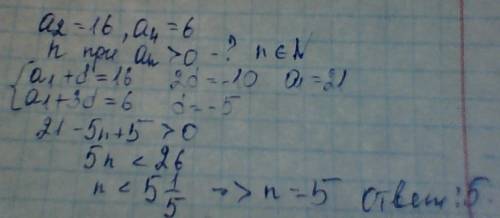 a2=16, a4=6
n при an >0 -? n∈N
{a1+d=16 2d=-10 a1=21
{a1+3d=6 d=-5
21-5n+5>0
5n<26
n<5 1/5 -> n=5 Ответ: 5